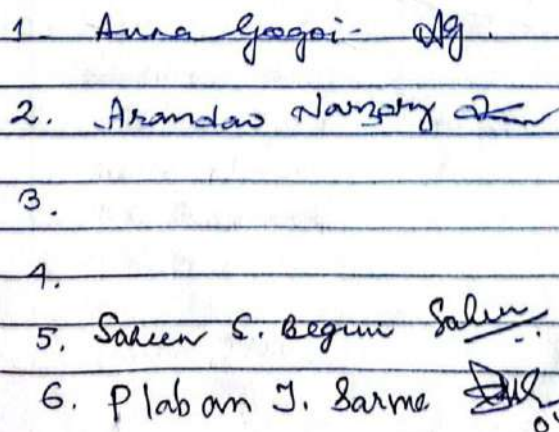 1. Anna Gogoi - AG.
2. Arandao Narzary
3.
4.
5. Saleen S. Begum Salin
6. Plaban J. Sarma